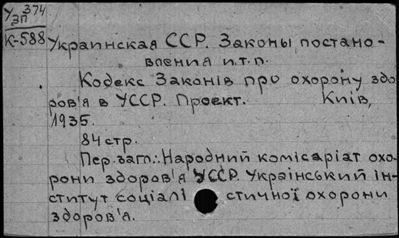 У 374
зп
К-588
Украинская ССР. Законы постано-
вления и.т.п.
Кодекс Законів про охорону здо
ров'я в УССР. Проект. Київ,
1935.
84 стр.
Пер. загл.: Народний комісаріат охо-
рони здоров'я УССР. Український ін-
ститут соціалі стичної охорони
здоров'я.